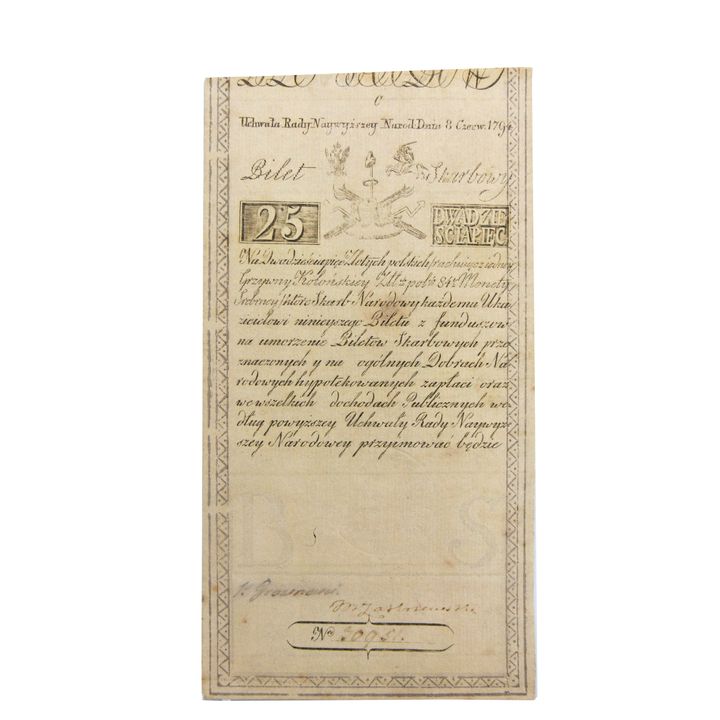 C
Uchwała Rady Naywyższey Narod: Dnia 8 Czerw. 1794
Bilet Skarbowy
25
DWADZIE
ŚCIAPIĘC
Na Dwadzieściapięć Złotych polskich rachuiąc z iedney
Grzywny Kolońskiey Złł: pols: 84 1/4 Monety
Srebrney ktore Skarb Narodowy każdemu Uka,
zicielowi ninieyszego Biletu z funduszow
na umorzenie Biletow Skarbowych prze
znaczonych y na ogólnych Dobrach Na,
rodowych hypotekowanych zapłaci oraz
we wszelkich dochodach Publicznych we
dług powyższey Uchwały Rady Naywyż
szey Narodowey przyimować będzie
B S
Nro